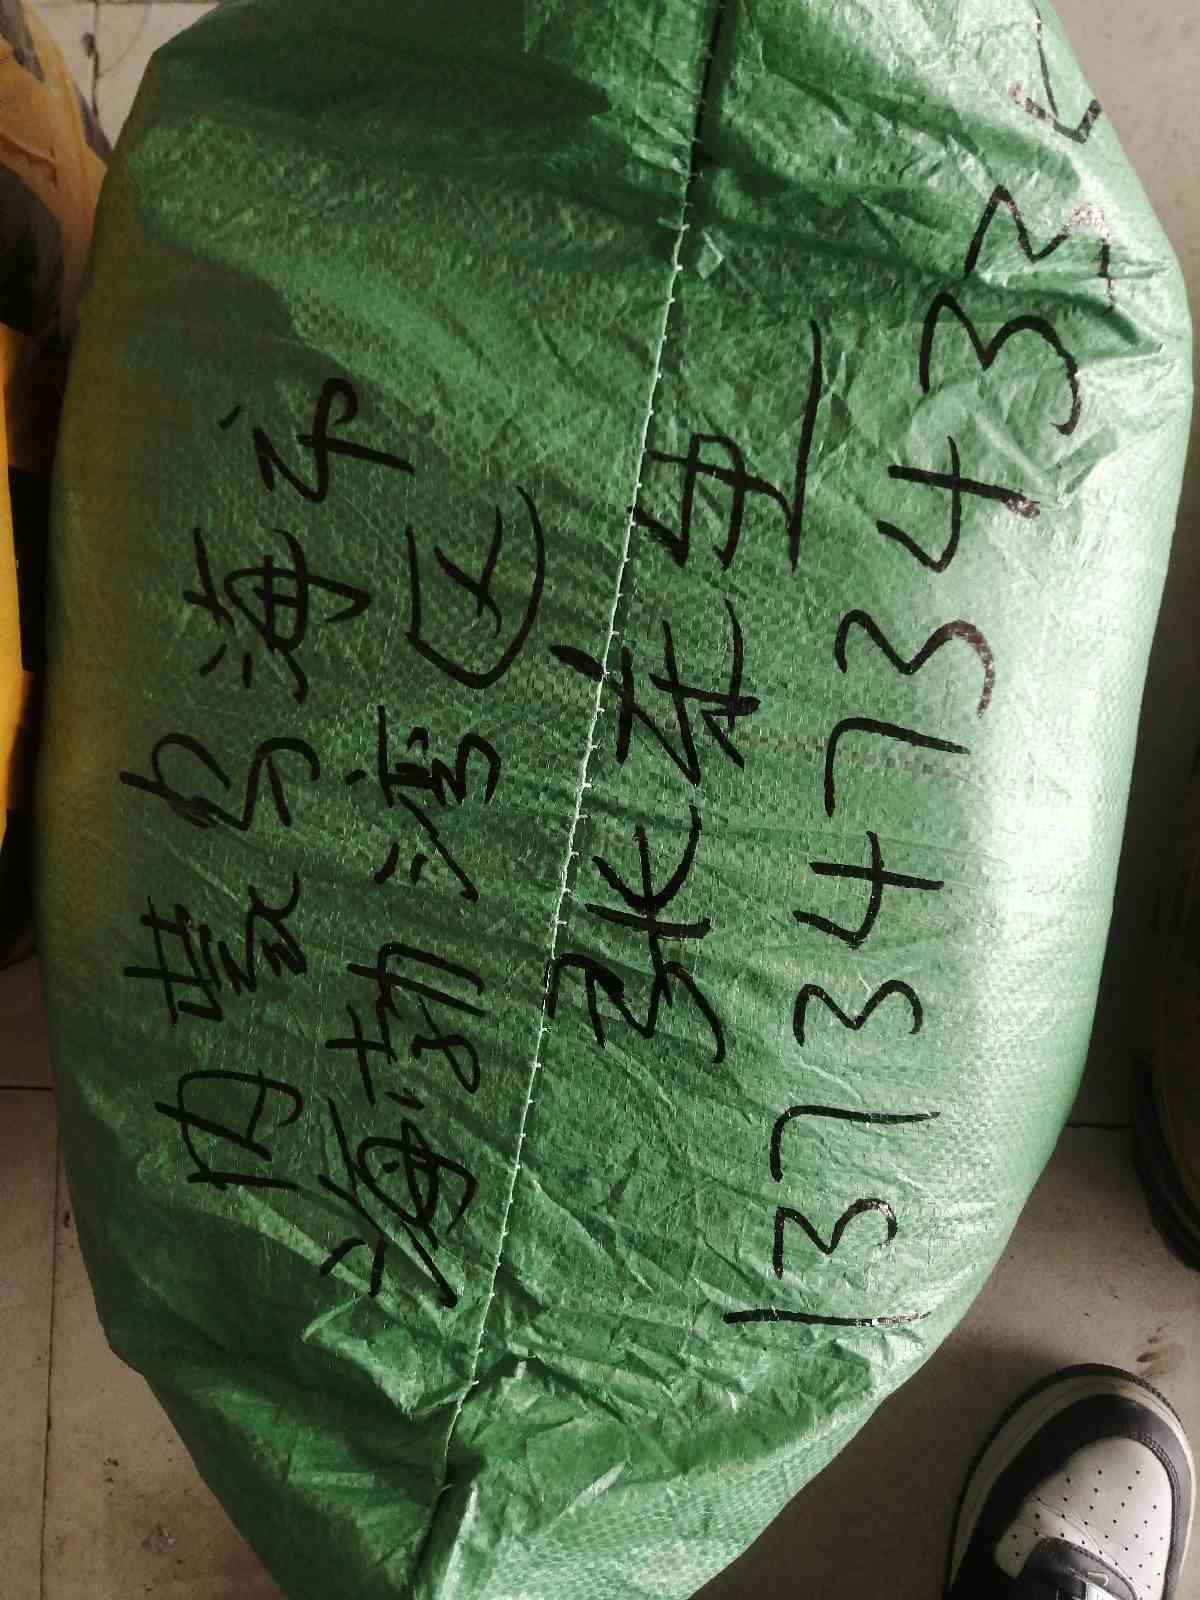 内蒙乌海市
海勃湾区
张东
13734734332